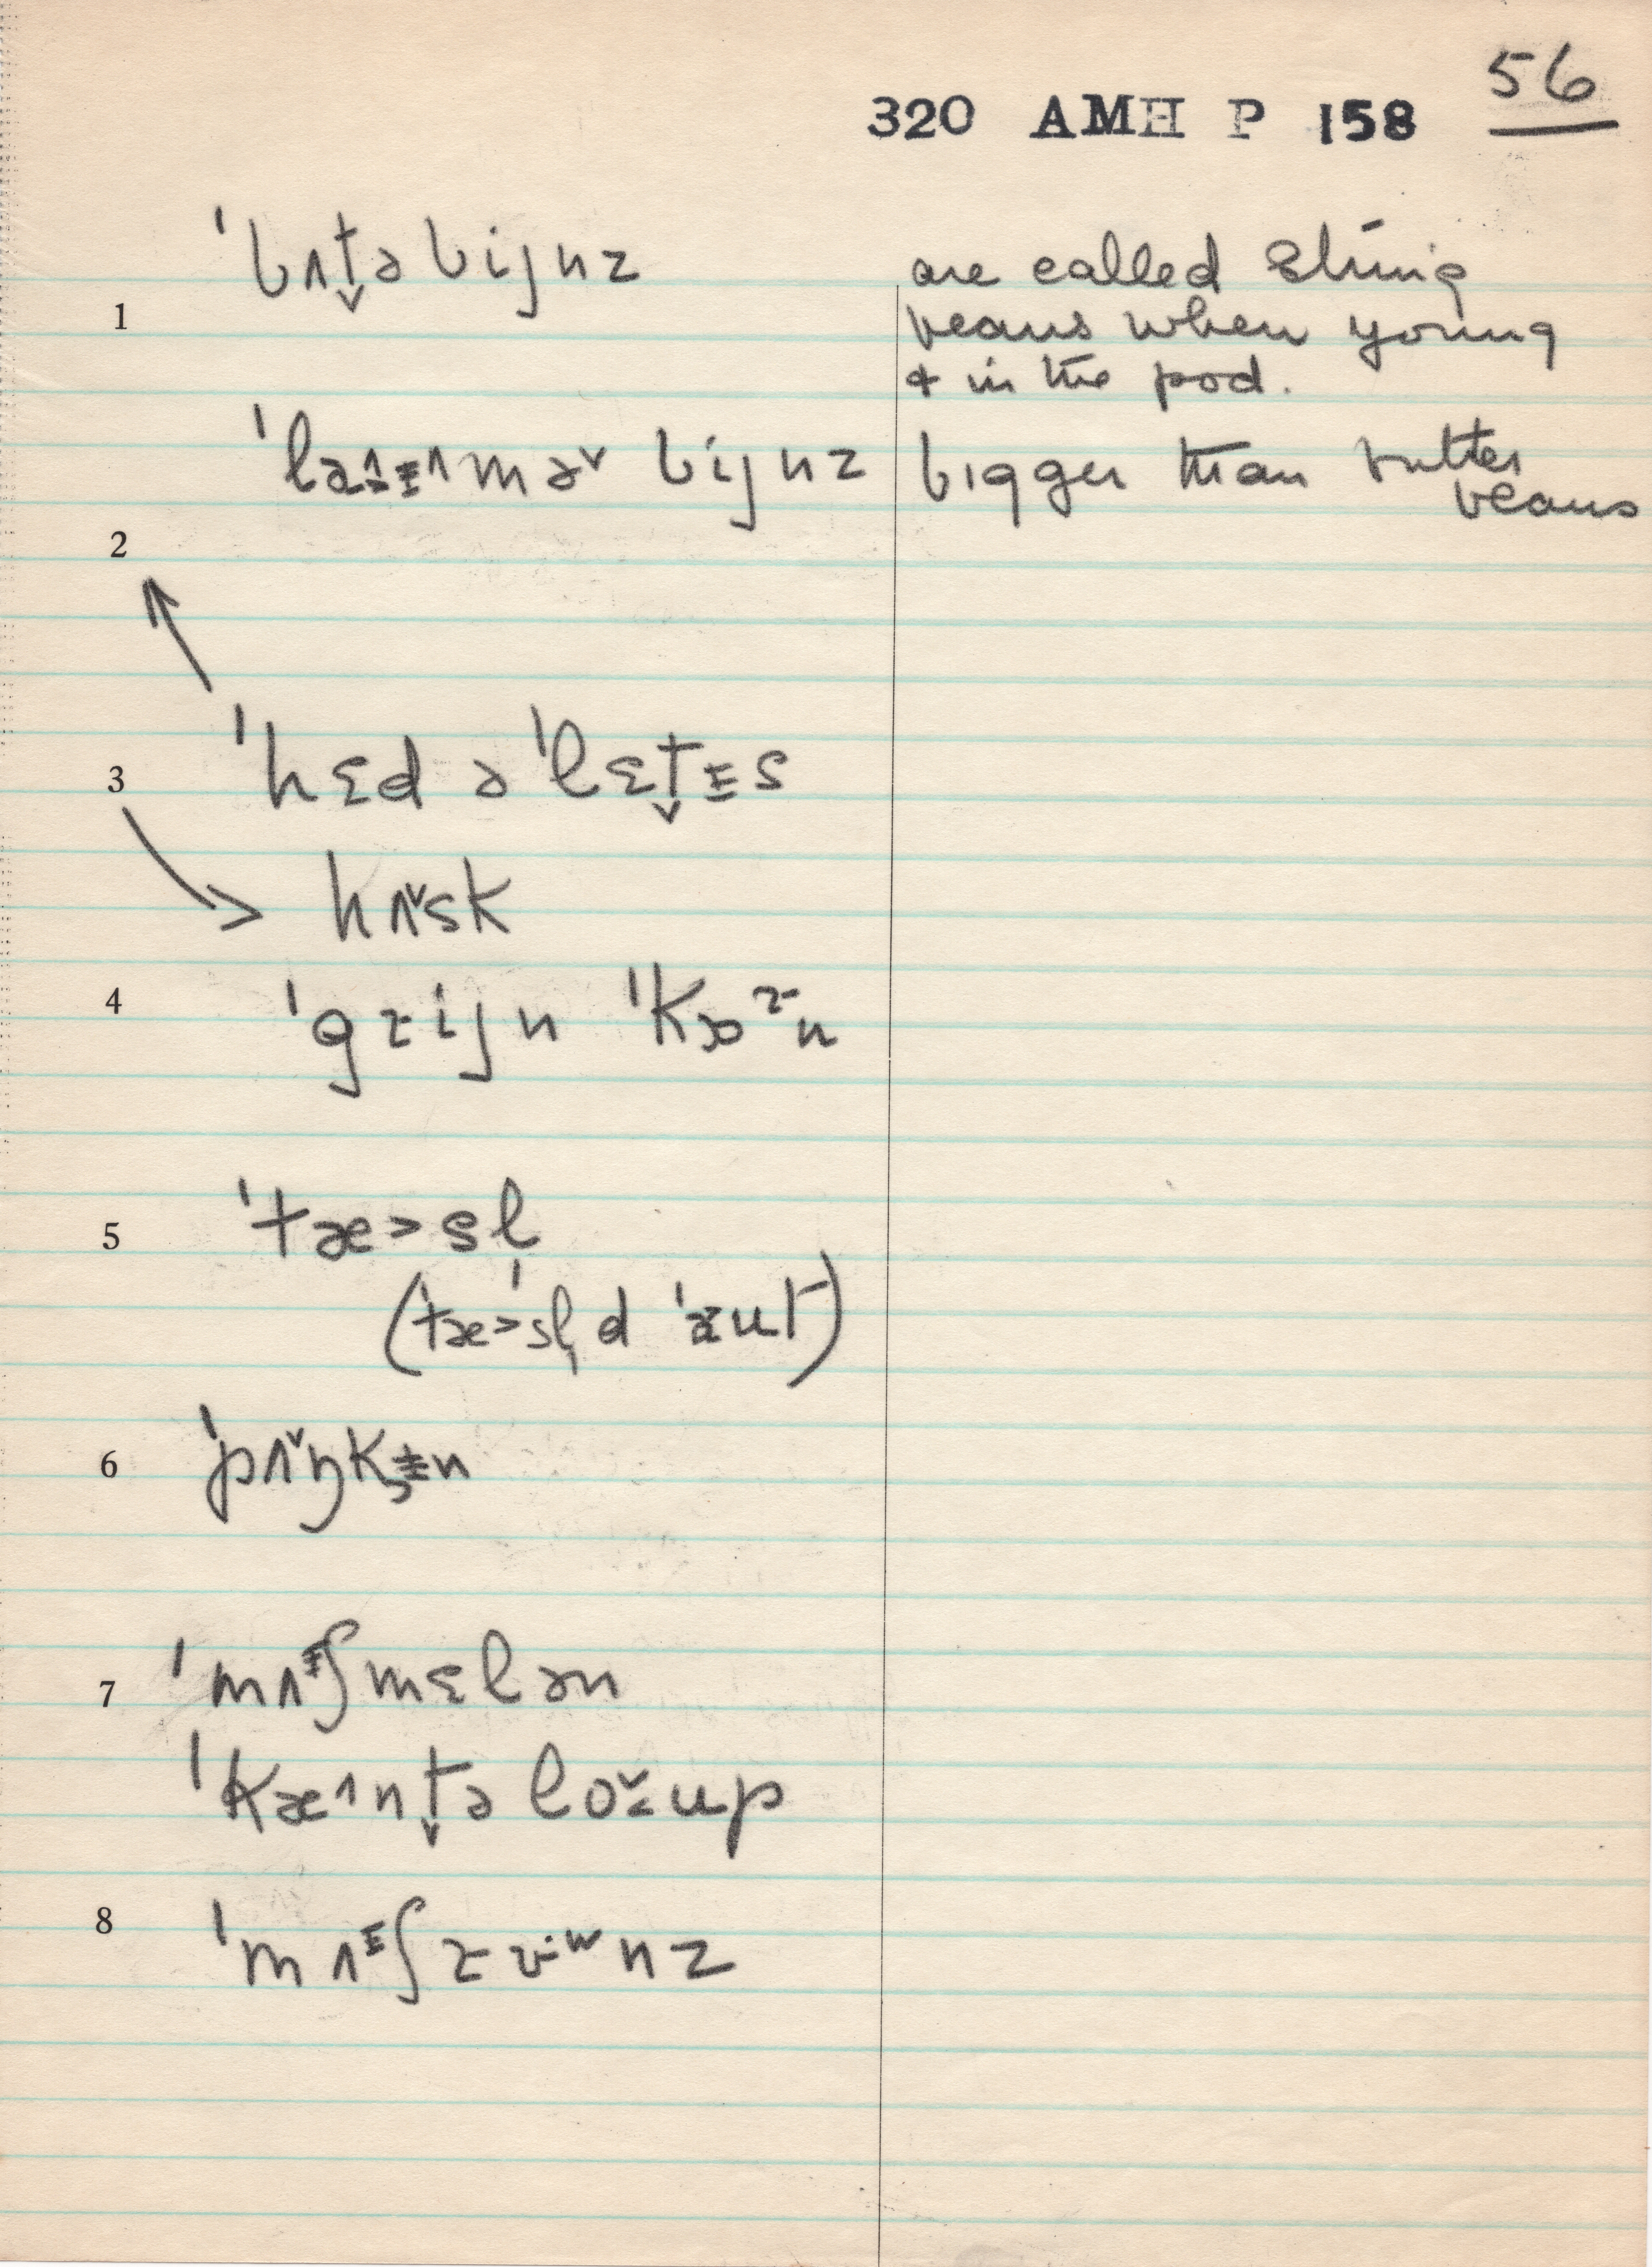 56
320 AMH P 158
ˈbʌt̬ə bijnz
are called string
beans when young
& in the pod.
1
ˈlaᶺᵻ^mə˅ bijnz
bigger than butter
beans
2
ˈhɛd ə ˈlɛt̬ᵻs
3
hʌ˅sk
4
ˈgɾijn ˈkɔɚn
5
ˈtæ>sl
(ˈtæ>sl̩d ˈæut)
6
ˈpʌ˅ŋkᵻn
7
ˈmʌᵻʃmɛlən
ˈkæ^nt̬əlo˅up
8
ˈmʌᵻʃɾʉʷnz